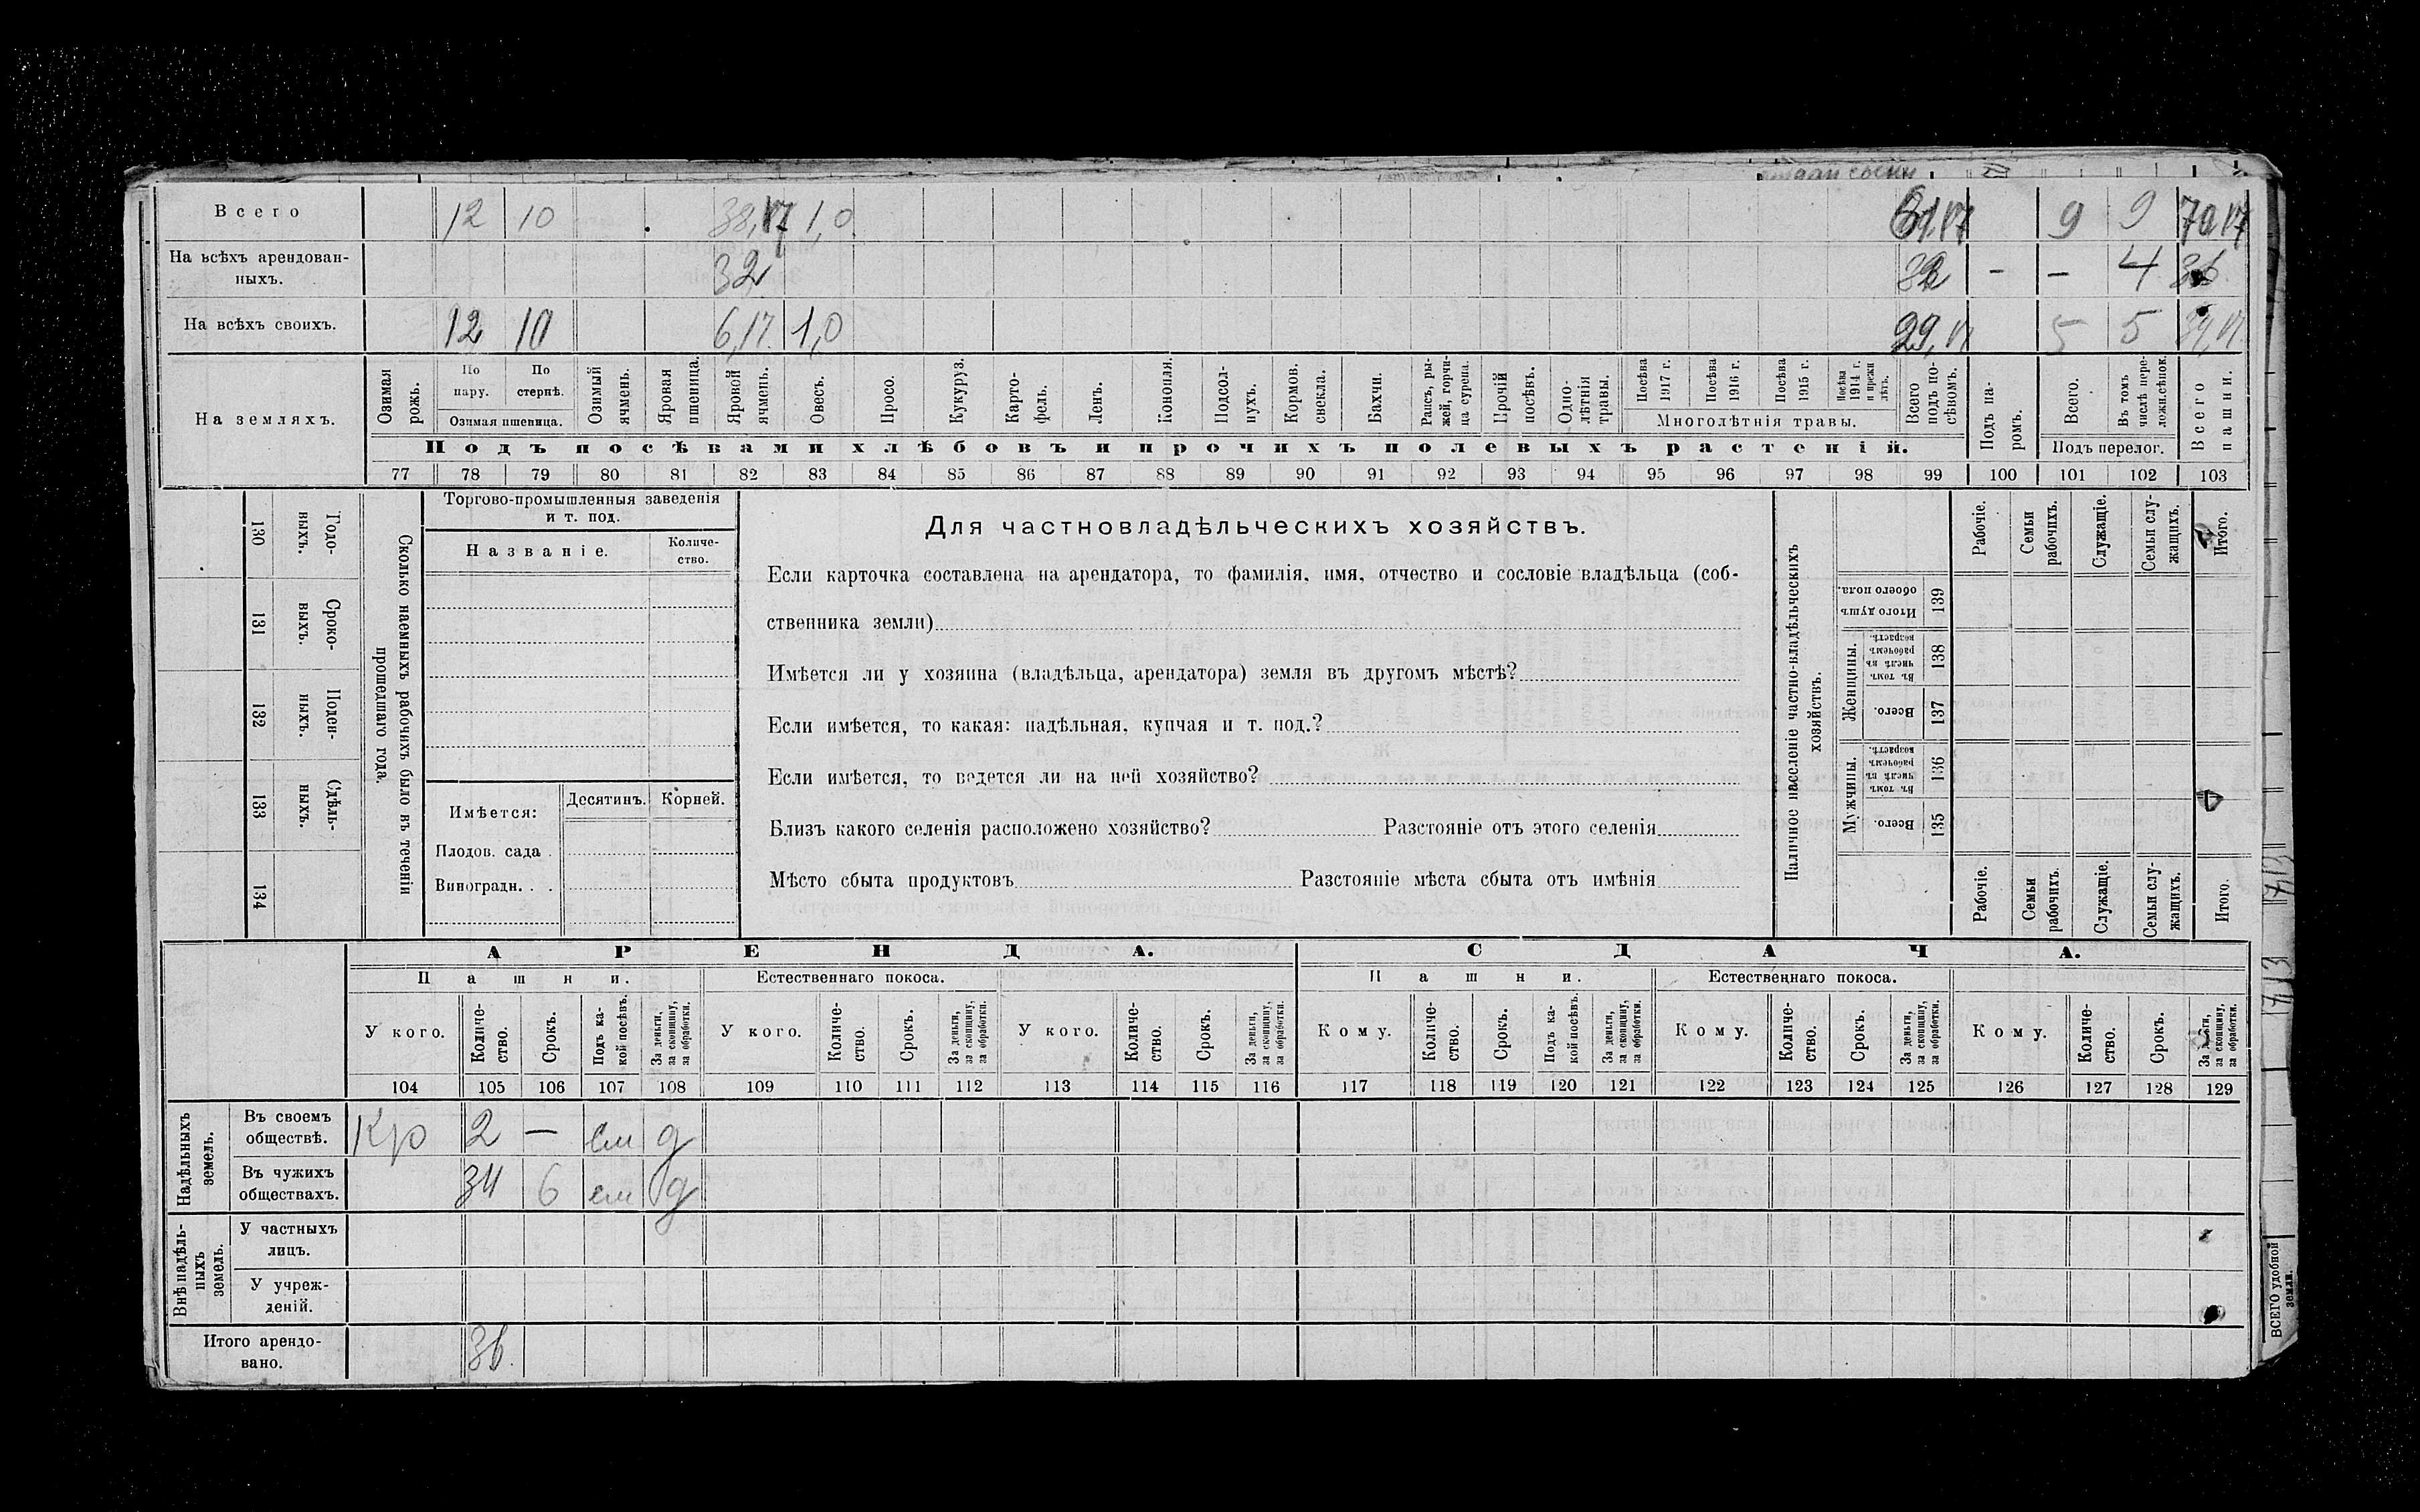 Всего 12 10 38,17 1,0 61,17 9 9 70,17
На всѣхъ арендован-
ныхъ. 32 32 - - 4 36
На всѣхъ своихъ. 12 10 6,17 1,0 29,17 5 5 34,17
На земляхъ.
Озимая рожь.
По пару.
По стернѣ.
Озимая пшеница.
Озимый ячмень.
Яровая пшеница.
Яровой ячмень.
Овесъ.
Просо.
Кукуруз.
Карто-
фель.
Ленъ.
Конопля.
Подсол-
нухъ.
Кормов.
свекла.
Бахчи.
Рапсъ, ры-
жей, горчи-
ца сурепа.
Прочій
посѣвъ.
Одно-
лѣтнія
травы.
Посѣва
1917 г.
Посѣва
1916 г.
Посѣва
1915 г.
Посѣва
1914 г.
и прежн
лѣтъ.
Многолѣтнія травы.
Всего
подъ по-
сѣвомъ.
Подъ па-
ромъ.
Всего.
Въ томъ
числѣ пере-
ложн.сѣнок.
Подъ перелог.
Всего
пашни.
Подъ посѣвами хлѣбовъ и прочихъ полевыхъ растеній.
77 78 79 80 81 82 83 84 85 86 87 88 89 90 91 92 93 94 95 96 97 98 99 100 101 102 103
Сколько наемныхъ рабочихъ было въ теченіи
прошедшаго года.
Годо-
выхъ.
130
Сроко-
выхъ.
131
Поден-
ныхъ.
132
Сдѣль-
ныхъ.
133
134
Торгово-промышленныя заведенія
и т. под.
Названіе.
Количе-
ство.
Имѣется:
Десятинъ.
Корней.
Плодов. сада
Виноградн.
Для частновладѣльческихъ хозяйствъ.
Если карточка составлена на арендатора, то фамилія, имя, отчество и сословіе владѣльца (соб-
ственника земли)
Имѣется ли у хозяина (владѣльца, арендатора) земля въ другомъ мѣстѣ?
Если имѣется, то какая: надѣльная, купчая и т. под.?
Если имѣется, то ведется ли на ней хозяйство?
Близъ какого селенія расположено хозяйство? Разстояніе отъ этого селенія
Мѣсто сбыта продуктовъ Разстояніе мѣста сбыта отъ имѣнія
Наличное населеніе частно-владѣльческихъ
хозяйствъ.
Рабочіе.
Семьи
рабочихъ.
Служащіе.
Семьи слу-
жащихъ.
Итого.
Итого душъ
обоего пола.
139
Женщины.
Въ томъ
числѣ въ
рабочемъ
возрастѣ.
138
Всего.
137
Мужчины.
Въ томъ
числѣ въ
рабочемъ
возрастѣ.
136
Всего.
135
Рабочіе.
Семьи
рабочихъ.
Служащіе.
Семьи слу-
жащихъ.
Итого.
АРЕНДА. СДАЧА.
Пашни. Естественнаго покоса. Пашни. Естественнаго покоса.
У кого.
Количе-
ство.
Срокъ.
Подъ ка-
кой посѣвъ.
За деньги,
за скопщину,
за обработки.
У кого.
Количе-
ство.
Срокъ.
За деньги,
за скопщину,
за обработки.
У кого.
Количе-
ство.
Срокъ.
За деньги,
за скопщину,
за обработки.
Кому.
Количе-
ство.
Срокъ.
Подъ ка-
кой посѣвъ.
За деньги,
за скопщину,
за обработки.
Кому.
Количе-
ство.
Срокъ.
За деньги,
за скопщину,
за обработки.
Кому.
Количе-
ство.
Срокъ.
За деньги,
за скопщину,
за обработки.
104 105 106 107 108 109 110 111 112 113 114 115 116 117 118 119 120 121 122 123 124 125 126 127 128 129
Надѣльныхъ
земель.
Въ своемъ
обществѣ. Кр 2 — ям д
Въ чужихъ
обществахъ. 34 6 ям д
Внѣнадѣль-
ныхъ
земель.
У частныхъ
лицъ.
У учреж-
деній.
Итого арендо-
вано. 36.
ВСЕГО удобной
земли.